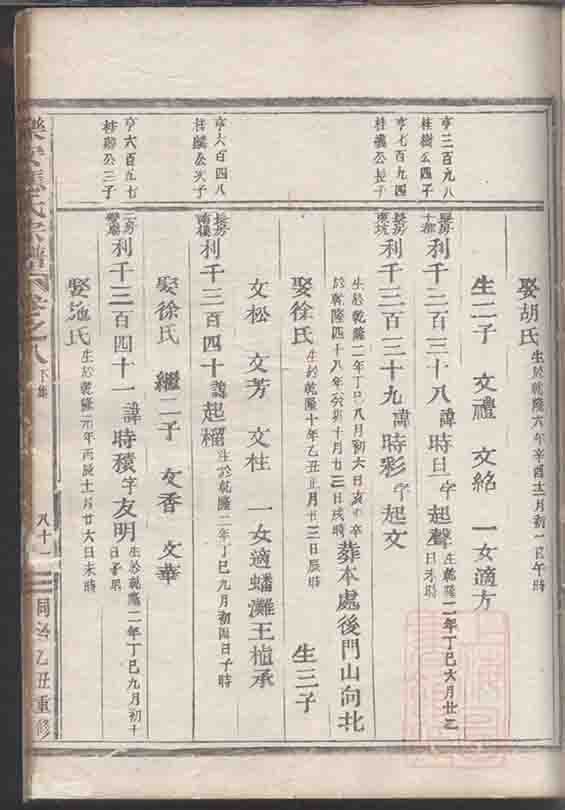 亨三百九八
桂樹公四子
亨七百九四
桂 公長子
亨六百四八
桂麟公次子
亨六百九七
桂 公三子
娶胡氏 生於乾隆六年辛酉十二月初一日午時
生二子 文禮 文紹 一女適方
利千三百三十八諱時旦字起聲 生乾隆二年丁巳六月廿三
日未時
長房
東坑
利千三百三十九諱時彩字起文
生於乾隆二年丁巳八月初六日亥時卒
於乾隆四十八年癸卯十月廿三日戌時
葬本處後門山向北
娶徐氏 生於乾隆十年乙丑正月廿三日辰時 生三子
文松 文芳 文柱 一女適蟠灘王 承
長房
南樓
利千三百四十諱起榴 生於乾隆二年丁巳九月初四日子時
娶徐氏 繼二子 文香 文華
二房
利千三百四十一諱時積字友明 生於乾隆二年丁巳九月初十
日子時
娶施氏 生於乾隆元年丙辰十二月廿六日未時
樂安 氏宗譜 卷之八 下集
八十一
同治乙丑重修